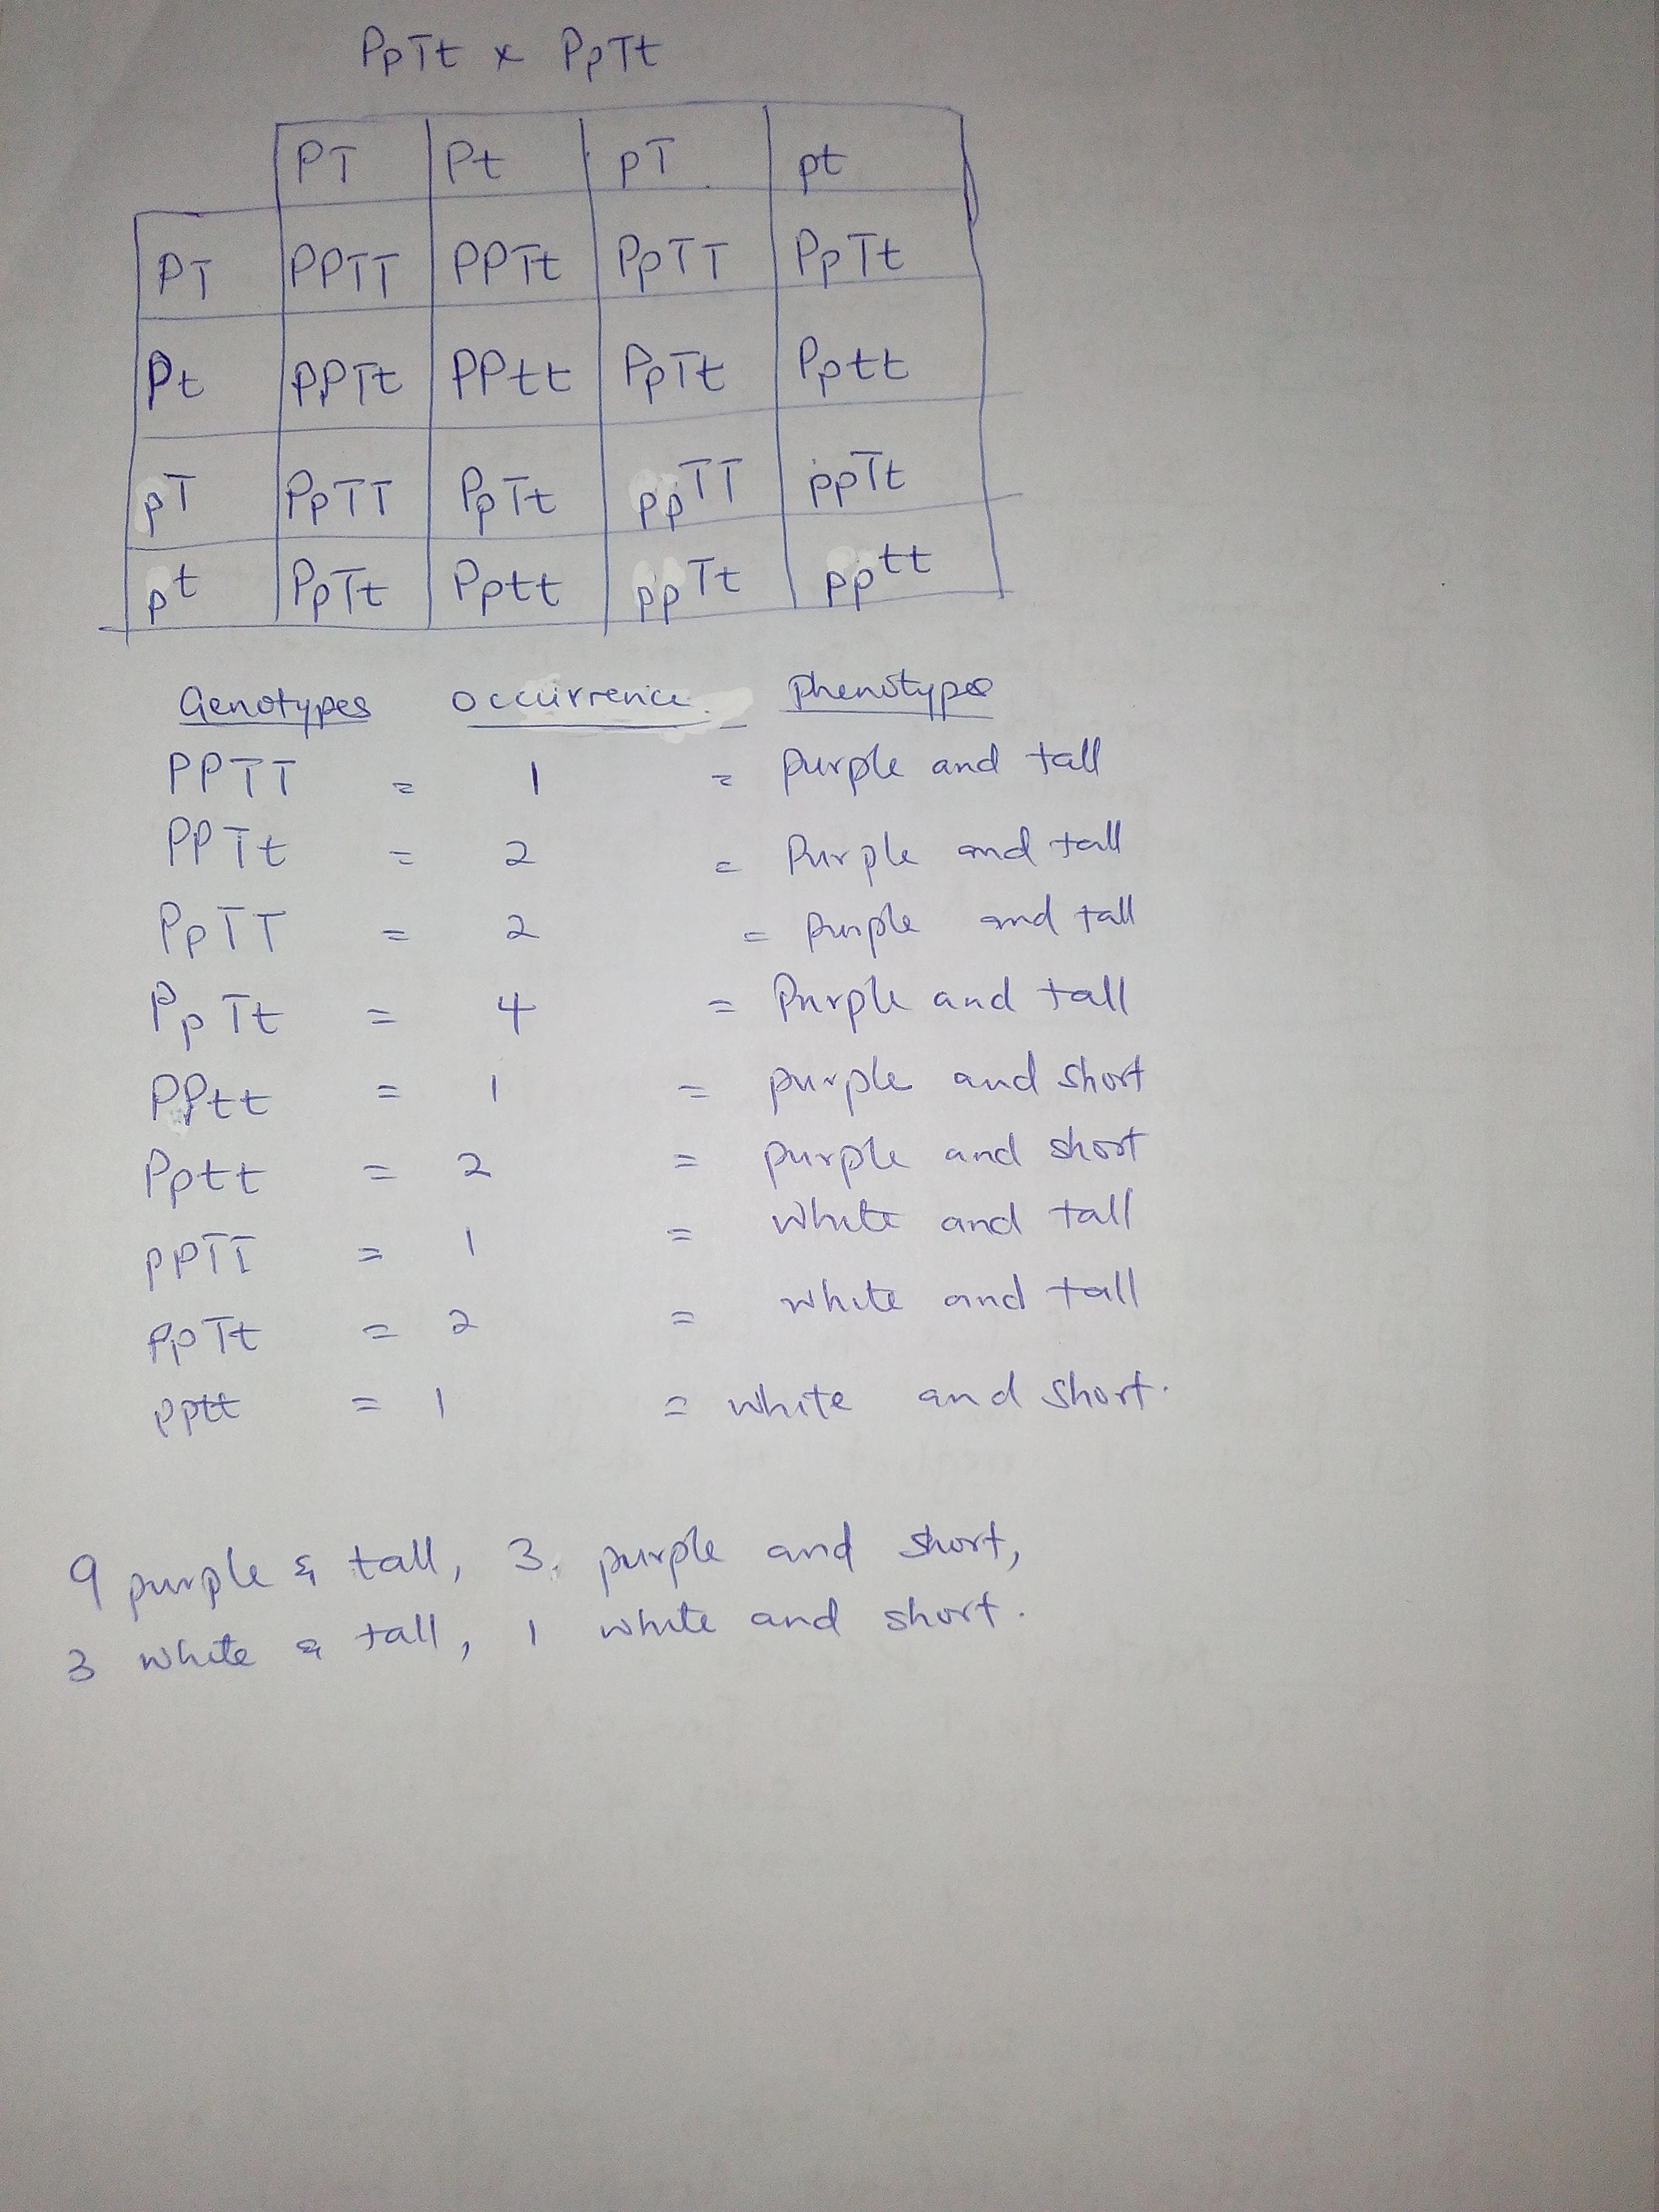 PpTt x PpTt
PT Pt pT pt
PT PPTT PPTt PpTT PpTt
Pt PPTt PPtt PpTt Pptt
pT PpTT PpTt ppTT ppTt
pt PpTt Pptt ppTt pptt
Genotypes occurrence. phenotypes
PPTT = 1 = purple and tall
PPTt = 2 = Purple and tall
PpTT = 2 = purple and tall
PpTt = 4 = Purple and tall
PPtt = 1 = purple and short
Pptt = 2 = purple and short
ppTT = 1 = white and tall
ppTt = 2 = white and tall
pptt = 1 = white and short.
9 purple & tall, 3. purple and short,
3 white & tall, 1 white and short.